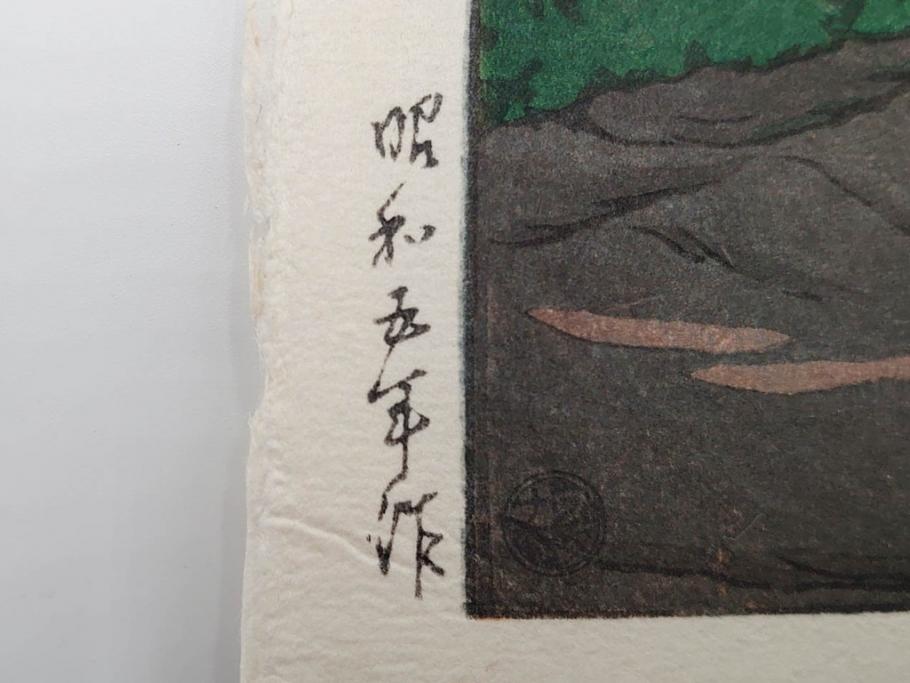 昭和五年作